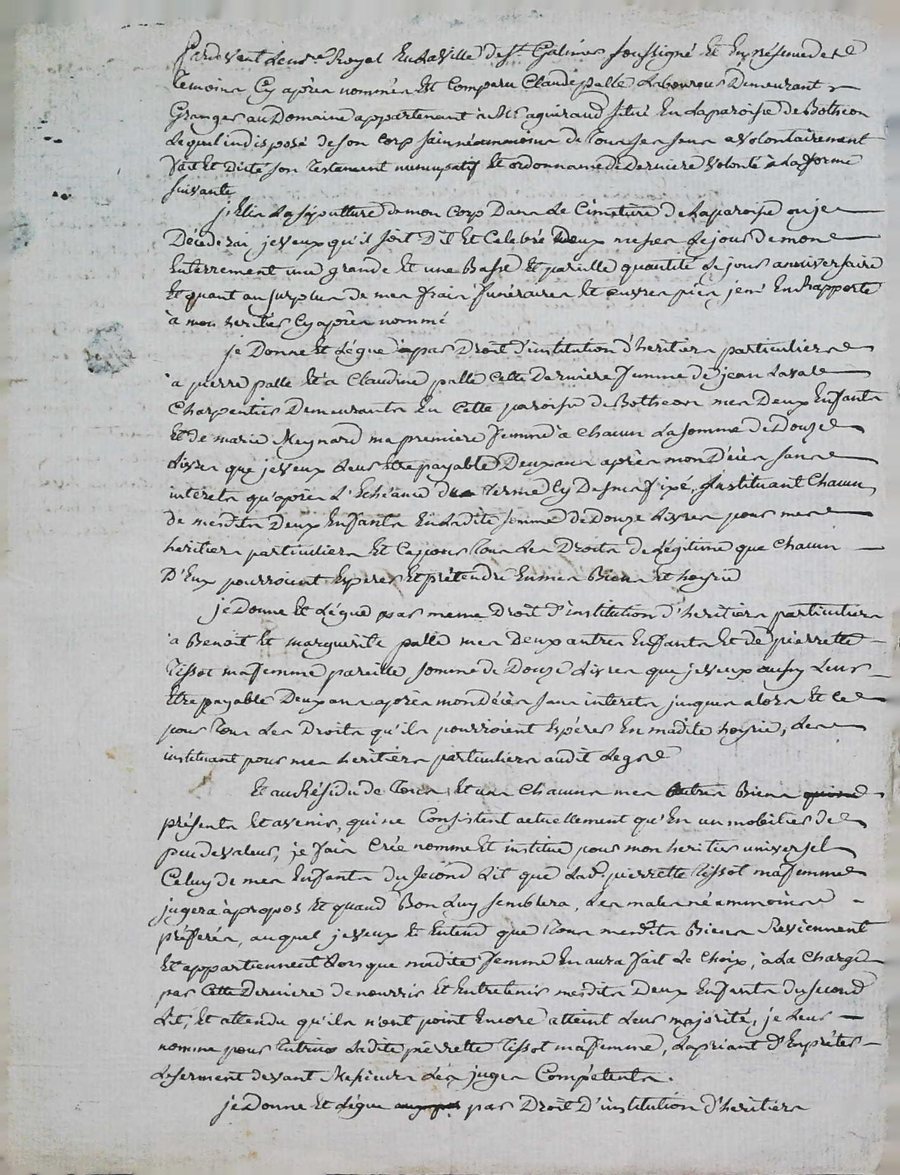 Pardevant Le no.re Royal En La Ville de S.t Galmier soussigné Et En présence des
Temoins Cy après nommés Est Comparu Claude palle Laboureur Demeurant
Granger au Domaine appartenant à M.r aguiraud situé En La paroisse de Bothéon
Lequel indisposé de son Corp sain néanmoins de Tous ses sens a Volontairement
fait Et Dicté son Testament nuncupatif Et ordonnance de Derniere Volonté à La forme
suivante
j'Elis La sépulture de mon Corp Dans Le Cimetiere de La paroisse ou je
Décéderai, je veux qu'il soit Dit Et Celebré Deux messes Le jour de mon
Enterrement une grande Et une Basse Et pareille quantité Le jour anniversaire
Et quant au surplus de mes frais funéraires Et œuvres pies je m'En Rapporte
à mon heritier Cy après nommé
je Donne Et Légue par Droit d'institution d'heritiers particuliers
à pierre palle Et à Claudine palle Cette Derniere femme de jean Lasale
Charpentier Demeurants En Cette paroisse de Bothéon mes Deux Enfants
Et de marie Meynard ma premiere femme à Chacun La somme de Douze
Livres que je veux Leur Etre payable Deux ans après mon Décès sans
intérêts qu'après L'Echéance du Terme Cy Dessus fixé, instituant Chacun
de mesdits Deux Enfants En Ladite somme de Douze Livres pour mes
heritiers particuliers Et Ce pour Tous Les Droits de Légitime que Chacun
D'Eux pourroient Esperer Et prétendre En mes Biens Et hoyrie
je Donne Et Légue par meme Droit d'institution d'heritiers particuliers
à Benoit Et marguerite palle mes Deux autres Enfants Et de pierrette
Tissot ma femme pareille somme de Douze Livres que je veux aussy Leur
Etre payable Deux ans après mon Décès sans interets jusques alors Et Ce
pour Tous Les Droits qu'ils pourroient Espérer En madite hoyrie, Les
instituant pour mes heritiers particuliers audit Legs
Et au Résidu de Tous Et uns Chacuns mes autres Biens
présents Et avenir, qui ne Consistent actuellement qu'En un mobilier de
peu de valeur, je fais Crée nomme Et institue pour mon heritier universel
Celuy de mes Enfants du second Lit que Lad.e pierrette Tissot ma femme
jugera à propos Et quand Bon Luy semblera, Les males néammoins
préférés, auquel je veux Et Entend que Tous mesdits Biens Reviennent
Et appartiennent Lorsque madite femme En aura fait Le Choix, à La Charge
par Cette Derniere de nourrir Et Entretenir mesdits Deux Enfants du second
Lit, Et attendu qu'ils n'ont point Encore atteint Leur majorité, je Leur
nomme pour Tutrice Ladite pierrette Tissot ma femme, La priant d'En prêter
Le serment devant Messieurs Les juges Compétents.
je Donne Et Légue par Droit D'institution d'heritiers